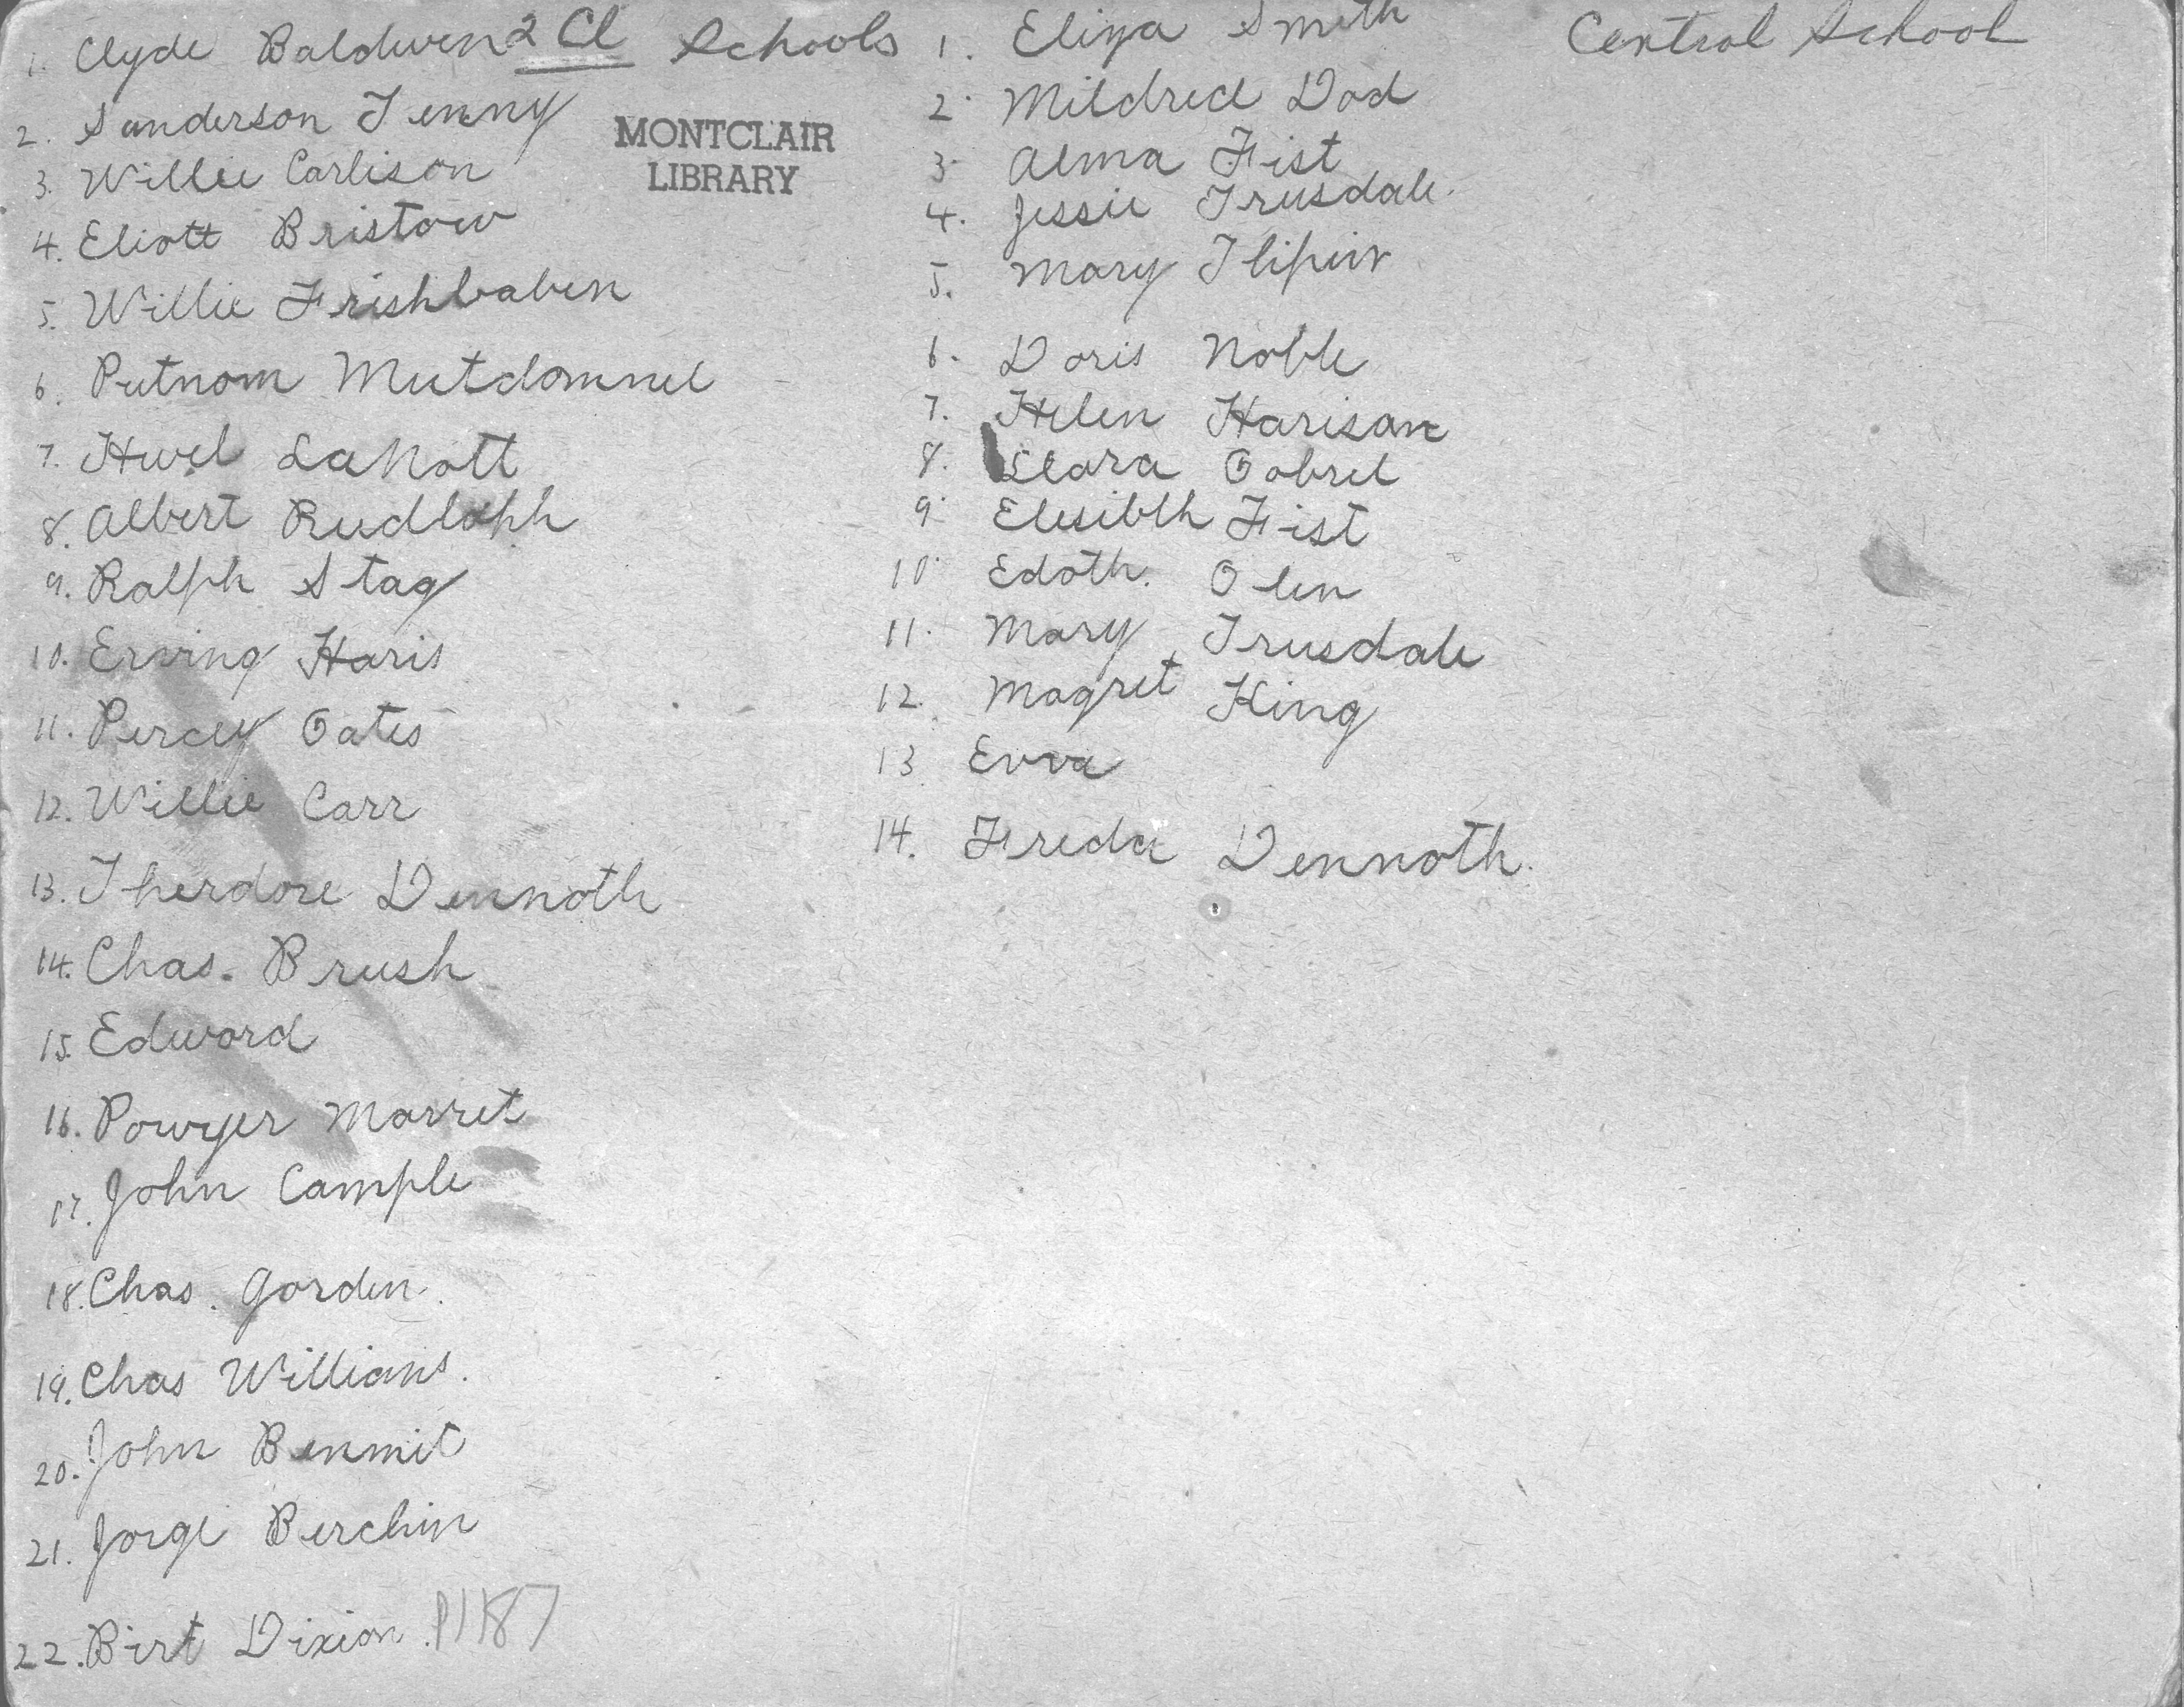 1. Clyde Baldwin
2 Cl Schools
MONTCLAIR
LIBRARY
2. Sanderson Tenny
3. Willie Carlison
4. Eliott Bristow
5. Willie Frishbaben
6. Putnom Mutdomnel
7. Huel LaNott
8. Albert Rudloph
9. Ralph Stag
10. Erving Haris
11. Percey Oates
12. Willie Carr
13. Therdore Dennoth
14. Chas. Brush
15. Edword
16. Powyer Marret
17. John Cample
18. Chas. Gorden.
19. Chas Willians.
20. John Benmit
21. Jorge Berchin
22. Birt Dixion. P1187
1. Eliza Smith
2. Mildred Dod
3. Alma Fist
4. Jessie Trusdale.
5. Mary
6. Doris Noble
7. Helen Harison
8. Clara Gabrel
9. Elesibth Fist
10. Edoth. Olen
11. Mary Trusdale
12. Magret King
13 Evva
14. Freda Dennoth.
Central School